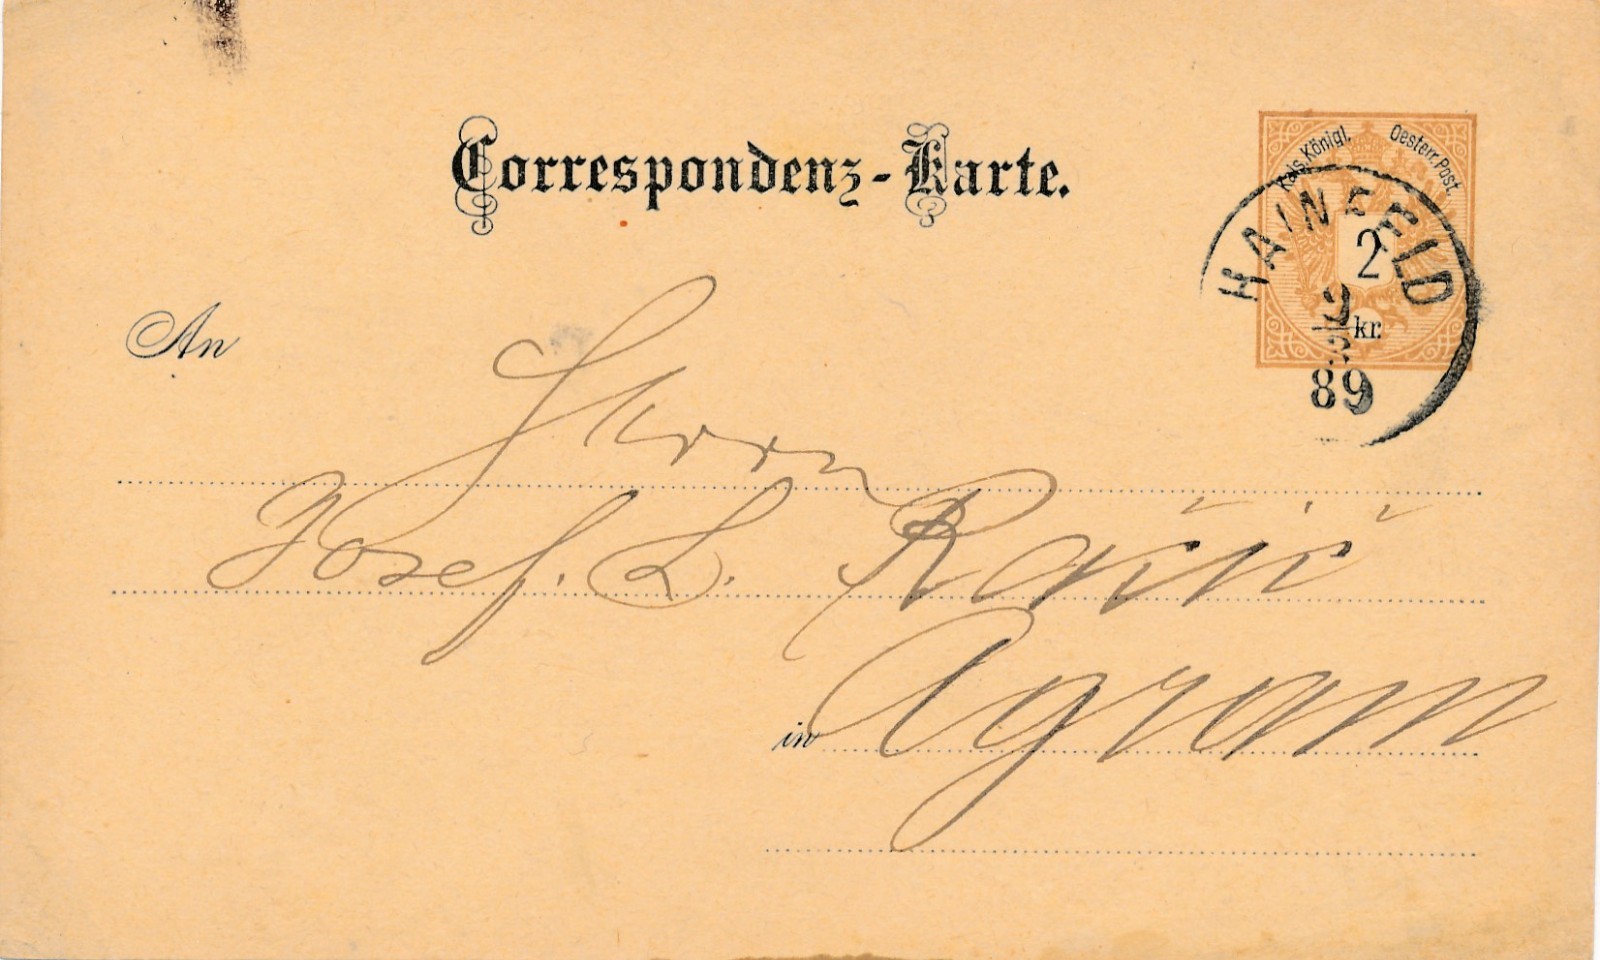 Correspondenz-Karte.
Kais. Königl. Oesterr. Post.
2
kr.
HAINFELD
9
89
An
Herrn
Josef. L. Račić
in Agram